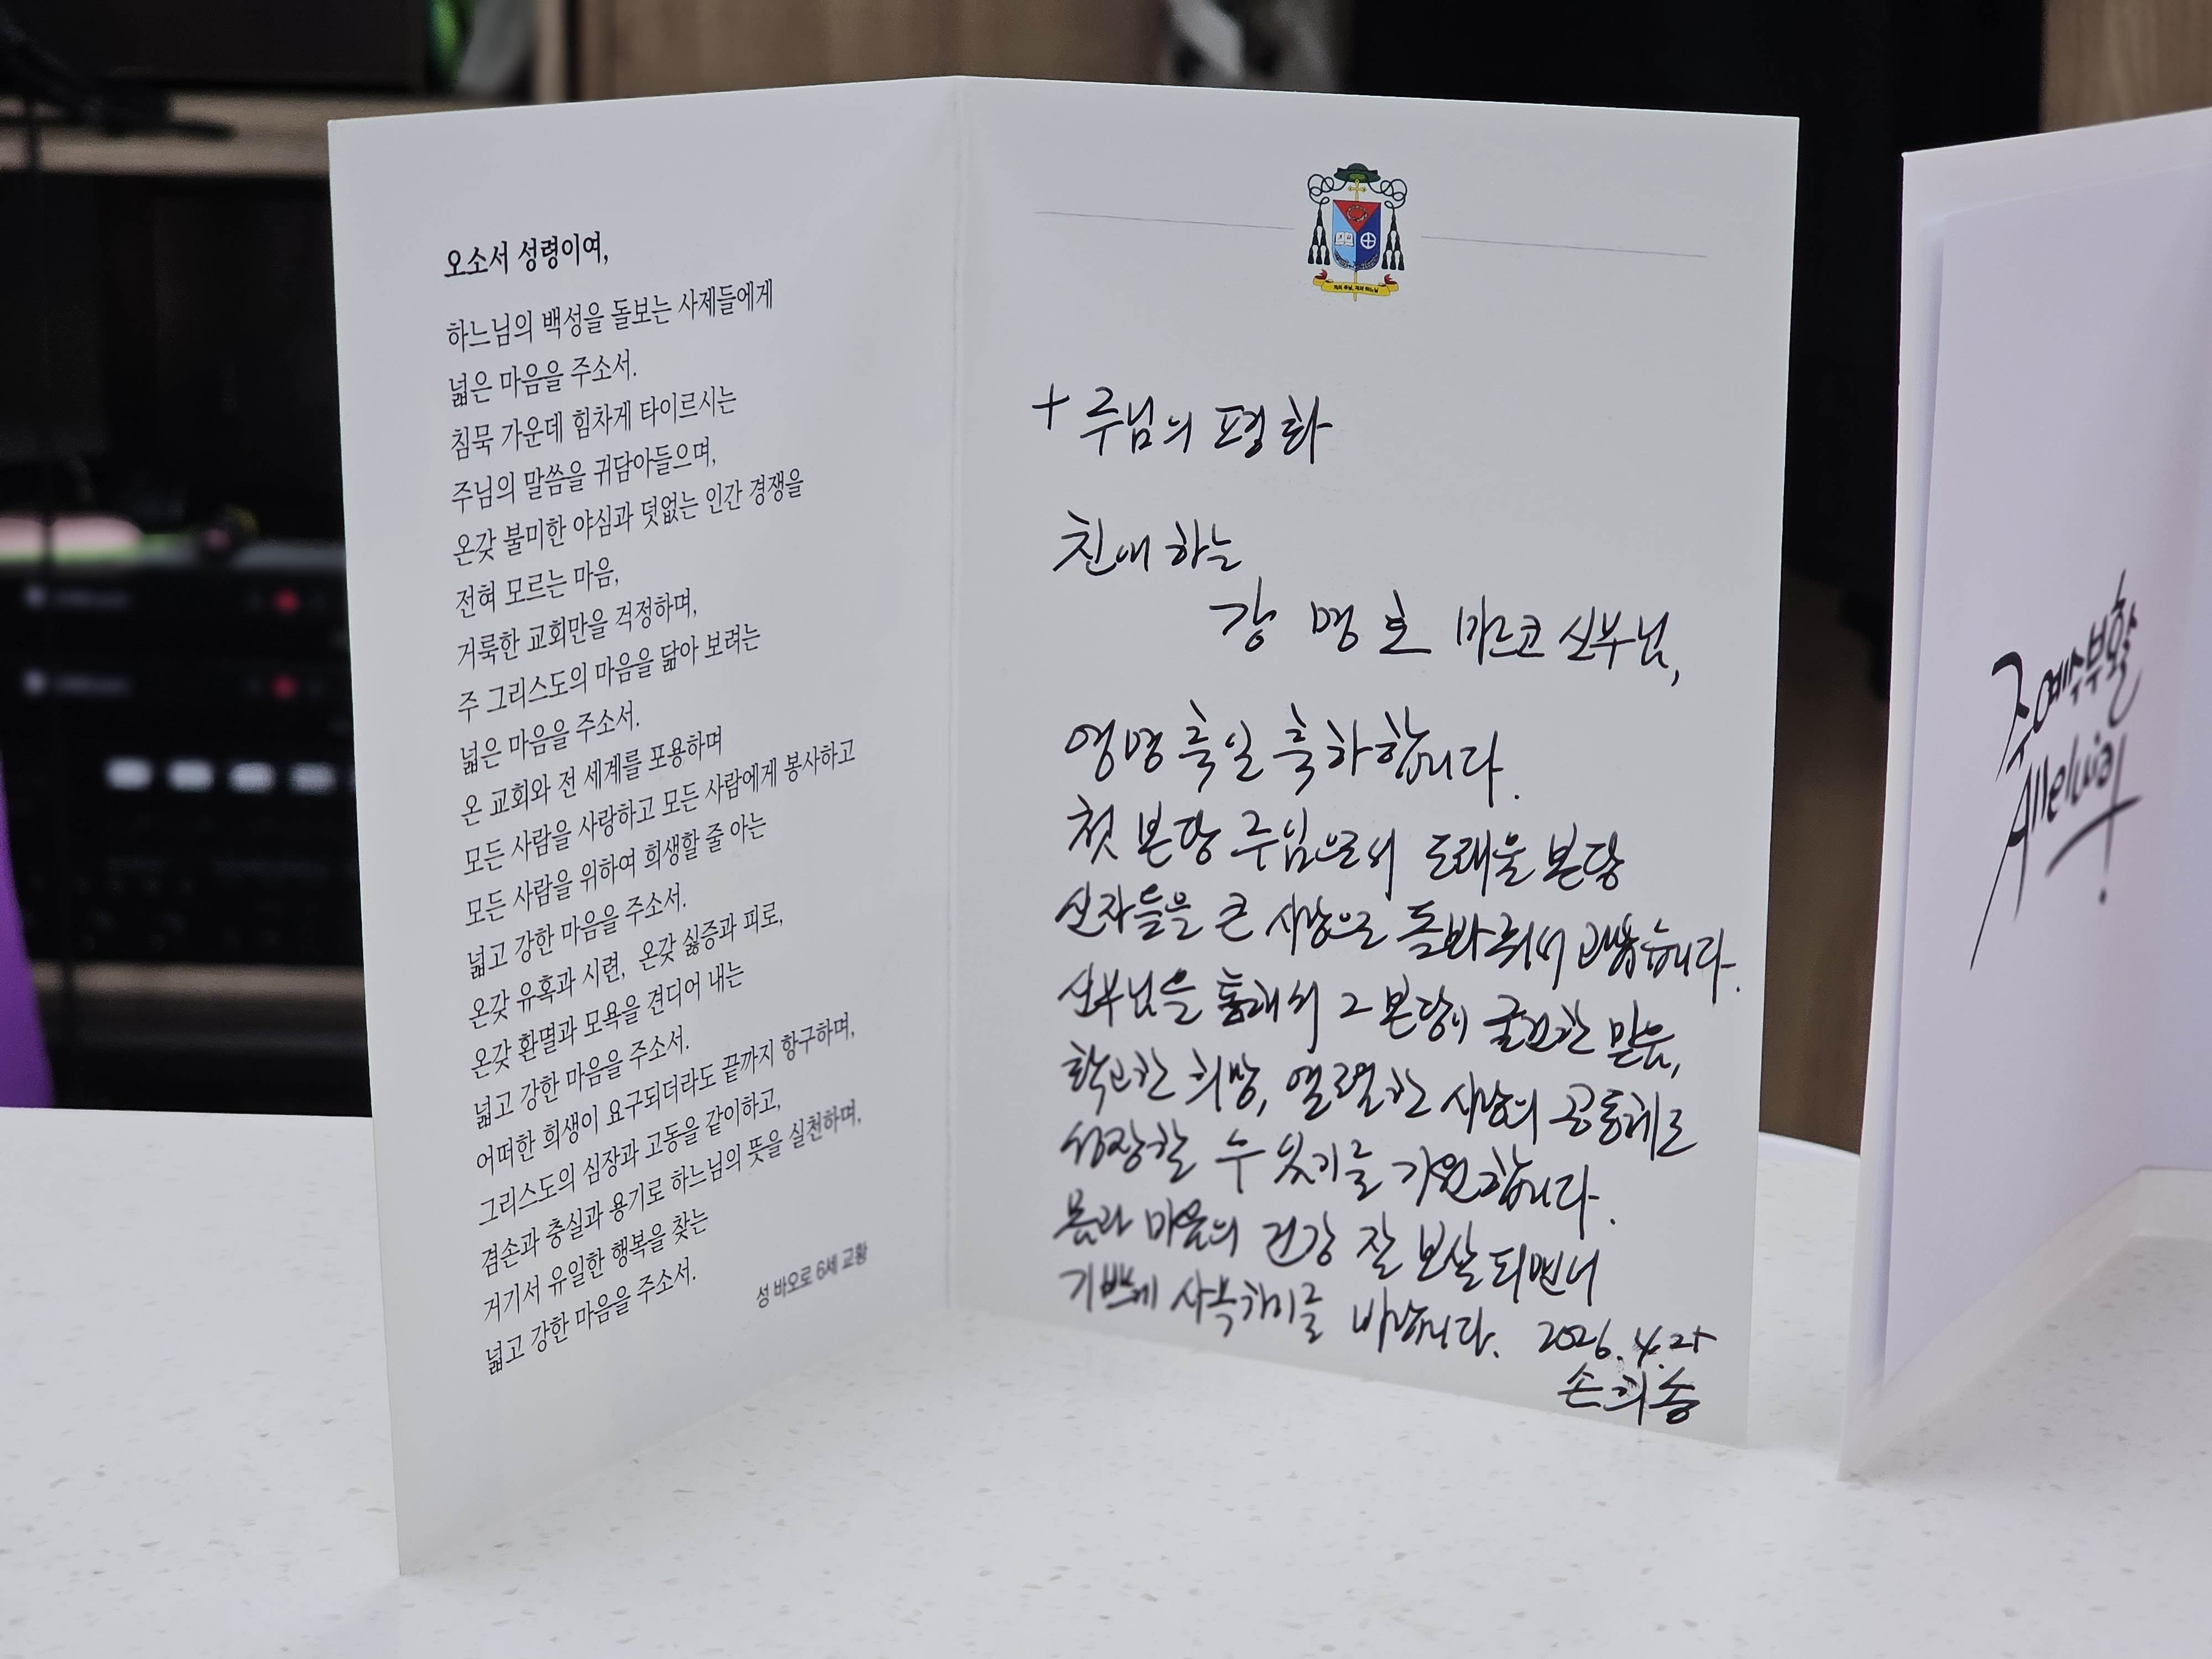 오소서 성령이여,
하느님의 백성을 돌보는 사제들에게
넓은 마음을 주소서.
침묵 가운데 힘차게 타이르시는
주님의 말씀을 귀담아들으며,
온갖 불미한 야심과 덧없는 인간 경쟁을
전혀 모르는 마음,
거룩한 교회만을 걱정하며,
주 그리스도의 마음을 닮아 보려는
넓은 마음을 주소서.
온 교회와 전 세계를 포용하며
모든 사람을 사랑하고 모든 사람에게 봉사하고
모든 사람을 위하여 희생할 줄 아는
넓고 강한 마음을 주소서.
온갖 유혹과 시련, 온갖 싫증과 피로,
온갖 환멸과 모욕을 견디어 내는
넓고 강한 마음을 주소서.
어떠한 희생이 요구되더라도 끝까지 항구하며,
그리스도의 심장과 고동을 같이하고,
겸손과 충실과 용기로 하느님의 뜻을 실천하며,
거기서 유일한 행복을 찾는
넓고 강한 마음을 주소서.
성 바오로 6세 교황
나의 주님, 나의 하느님
+ 주님의 평화
친애하는
강명호 마르코 신부님,
영명축일 축하합니다.
첫 본당 주임으로서 도래울 본당
신자들을 큰 사랑으로 돌봐줘서 고맙습니다.
신부님을 통해서 그 본당이 굳건한 믿음,
확고한 희망, 열렬한 사랑의 공동체로
성장할 수 있기를 기원합니다.
몸과 마음의 건강 잘 보살피면서
기쁘게 사목하기를 바랍니다. 2026. 4. 25
손희송
주 예수 부활
Alleluia!